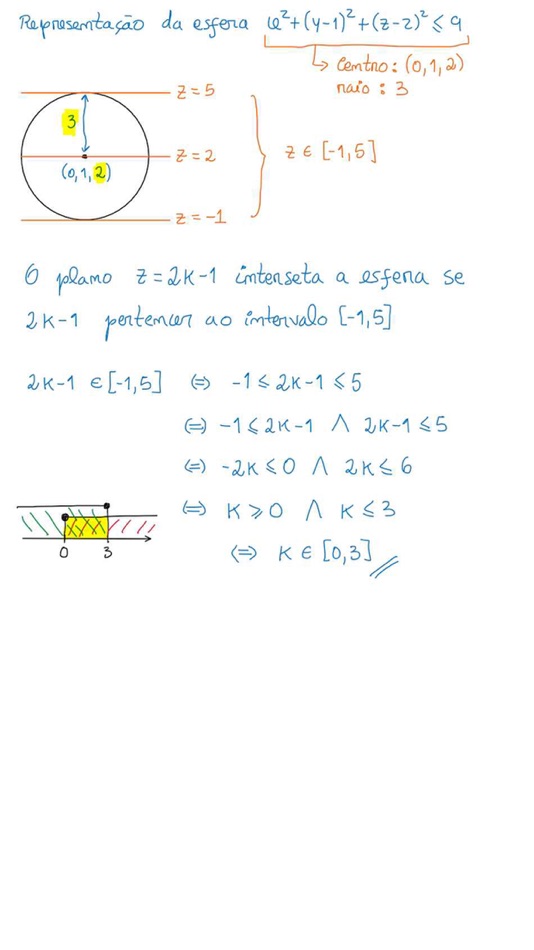 Representação da esfera x²+(y-1)²+(z-2)² ≤ 9
↳ Centro: (0,1,2)
raio : 3
z = 5
3
z = 2
(0,1,2)
z ∈ [-1,5]
z = -1
O plano z = 2k-1 interseta a esfera se
2k-1 pertencer ao intervalo [-1,5]
2k-1 ∈ [-1,5] (=) -1 ≤ 2k-1 ≤ 5
(=) -1 ≤ 2k-1 ∧ 2k-1 ≤ 5
(=) -2k ≤ 0 ∧ 2k ≤ 6
(=) k ≥ 0 ∧ k ≤ 3
0 3
(=) k ∈ [0,3]